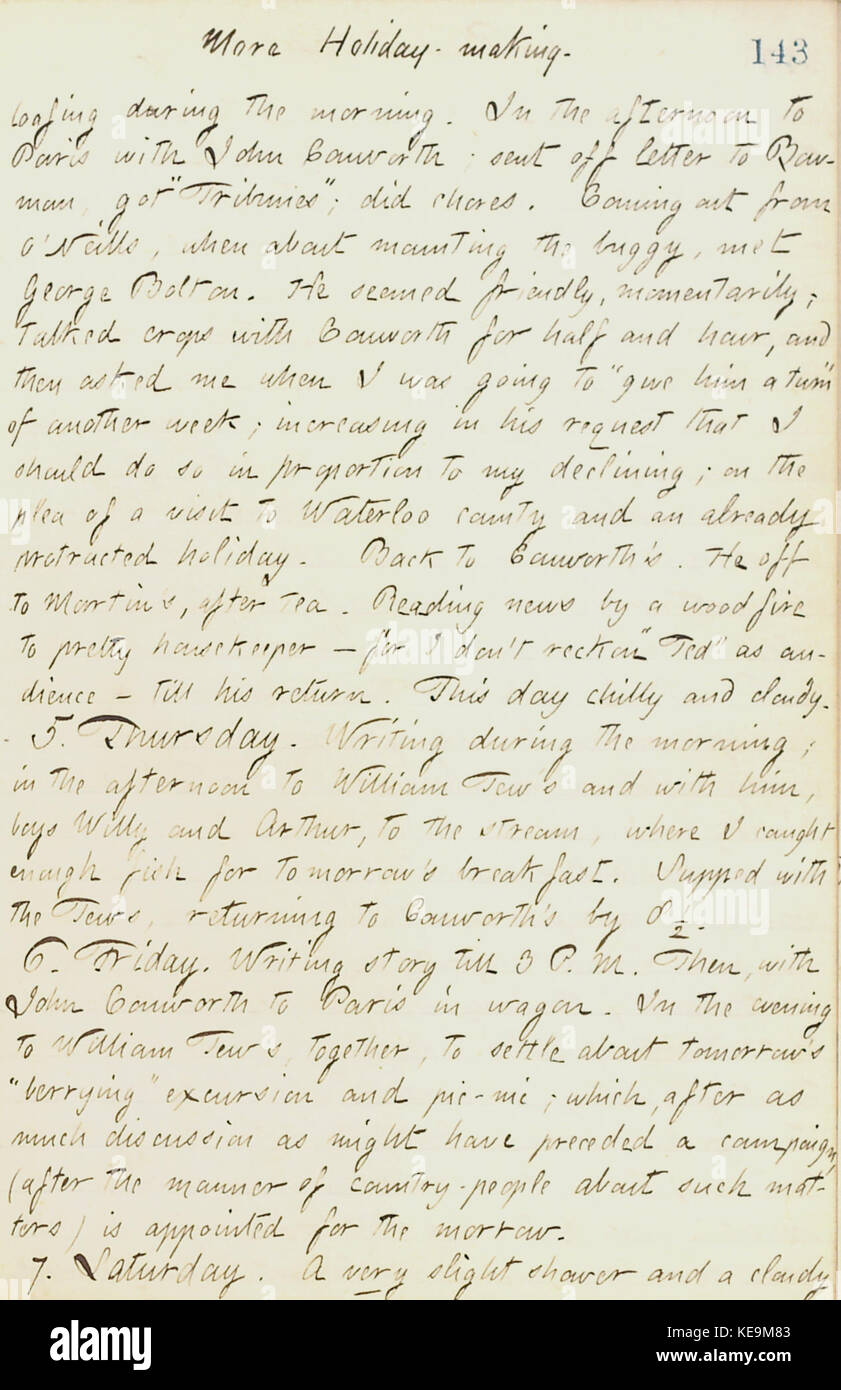 More Holiday-making. 143
loafing during the morning. In the afternoon to
Paris with John Conworth; sent off letter to Bow-
man, got "Tribunes"; did chores. Coming out from
O'Neills, when about mounting the buggy, met
George Bolton. He seemed friendly, momentarily;
talked crops with Conworth for half and hour, and
then asked me when I was going to "give him a turn"
of another week; increasing in his request that I
should do so in proportion to my declining; on the
plea of a visit to Waterloo county and an already
protracted holiday. Back to Conworth's. He off
to Martin's, after tea. Reading news by a wood fire
to pretty housekeeper — for I don't reckon "Ted" as au-
dience — till his return. This day chilly and cloudy.
5. Thursday. Writing during the morning;
in the afternoon to William Tew's and with him,
boys Willy and Arthur, to the stream, where I caught
enough fish for tomorrow's breakfast. Supped with
the Tews, returning to Conworth's by 8 1/2.
6. Friday. Writing story till 3 P. M. Then, with
John Conworth to Paris in wagon. In the evening
to William Tew's, together, to settle about tomorrow's
"berrying" excursion and pic-nic; which, after as
much discussion as might have preceded a campaign,
(after the manner of country-people about such mat-
ters) is appointed for the morrow.
7. Saturday. A very slight shower and a cloudy
alamy
Image ID: KE9M83
www.alamy.com